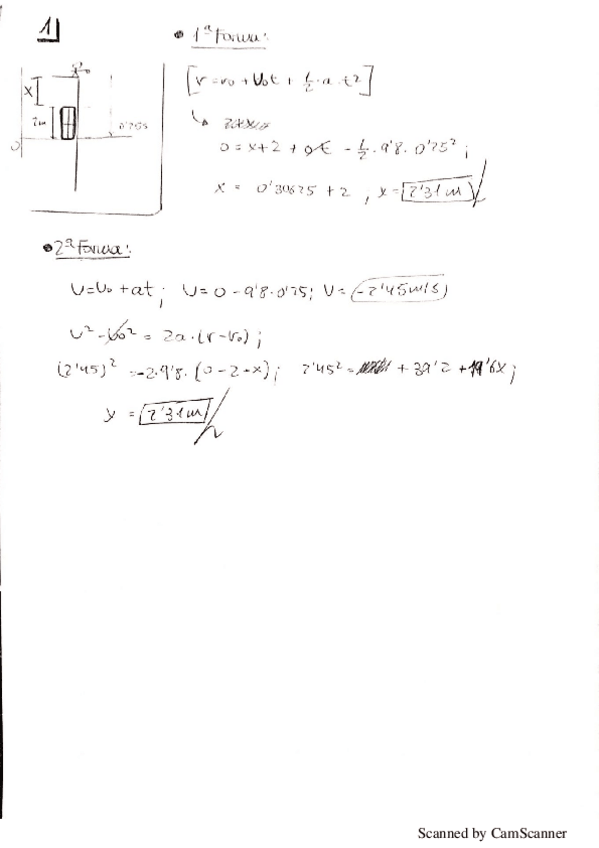 1)
• 1ª Forma:
x
2m
0'25s
0
[r = r₀ + v₀t + 1/2 · a · t²]
0 = x+2 + 0t - 1/2 · 9'8 · 0'25² ;
x = 0'30625 + 2 , x = 2'31 m
• 2ª Forma:
v = v₀ + at ; v = 0 - 9'8 · 0'25 ; v = -2'45 m/s
v² - v₀² = 2a · (r - r₀) ;
(2'45)² = -2 · 9'8 · (0 - 2 - x) ; 2'45² = + 39'2 + 19'6x ;
y = 2'31 m
Scanned by CamScanner